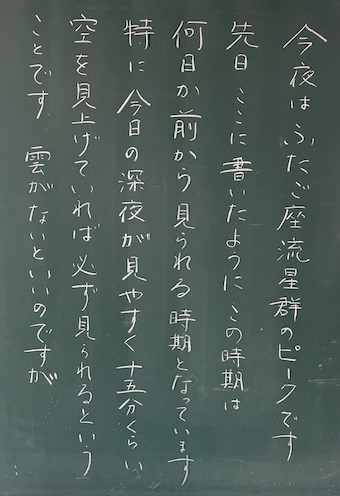 今夜はふたご座流星群のピークです
先日ここに書いたようにこの時期は
何日か前から見られる時期となっています
特に今日の深夜が見やすく十五分くらい
空を見上げていれば必ず見られるという
ことです 雲がないといいのですが